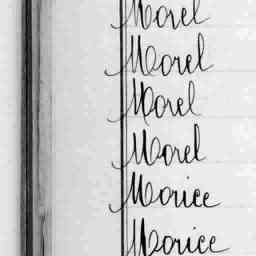 Morel
Morel
Morel
Morel
Morice
Morice